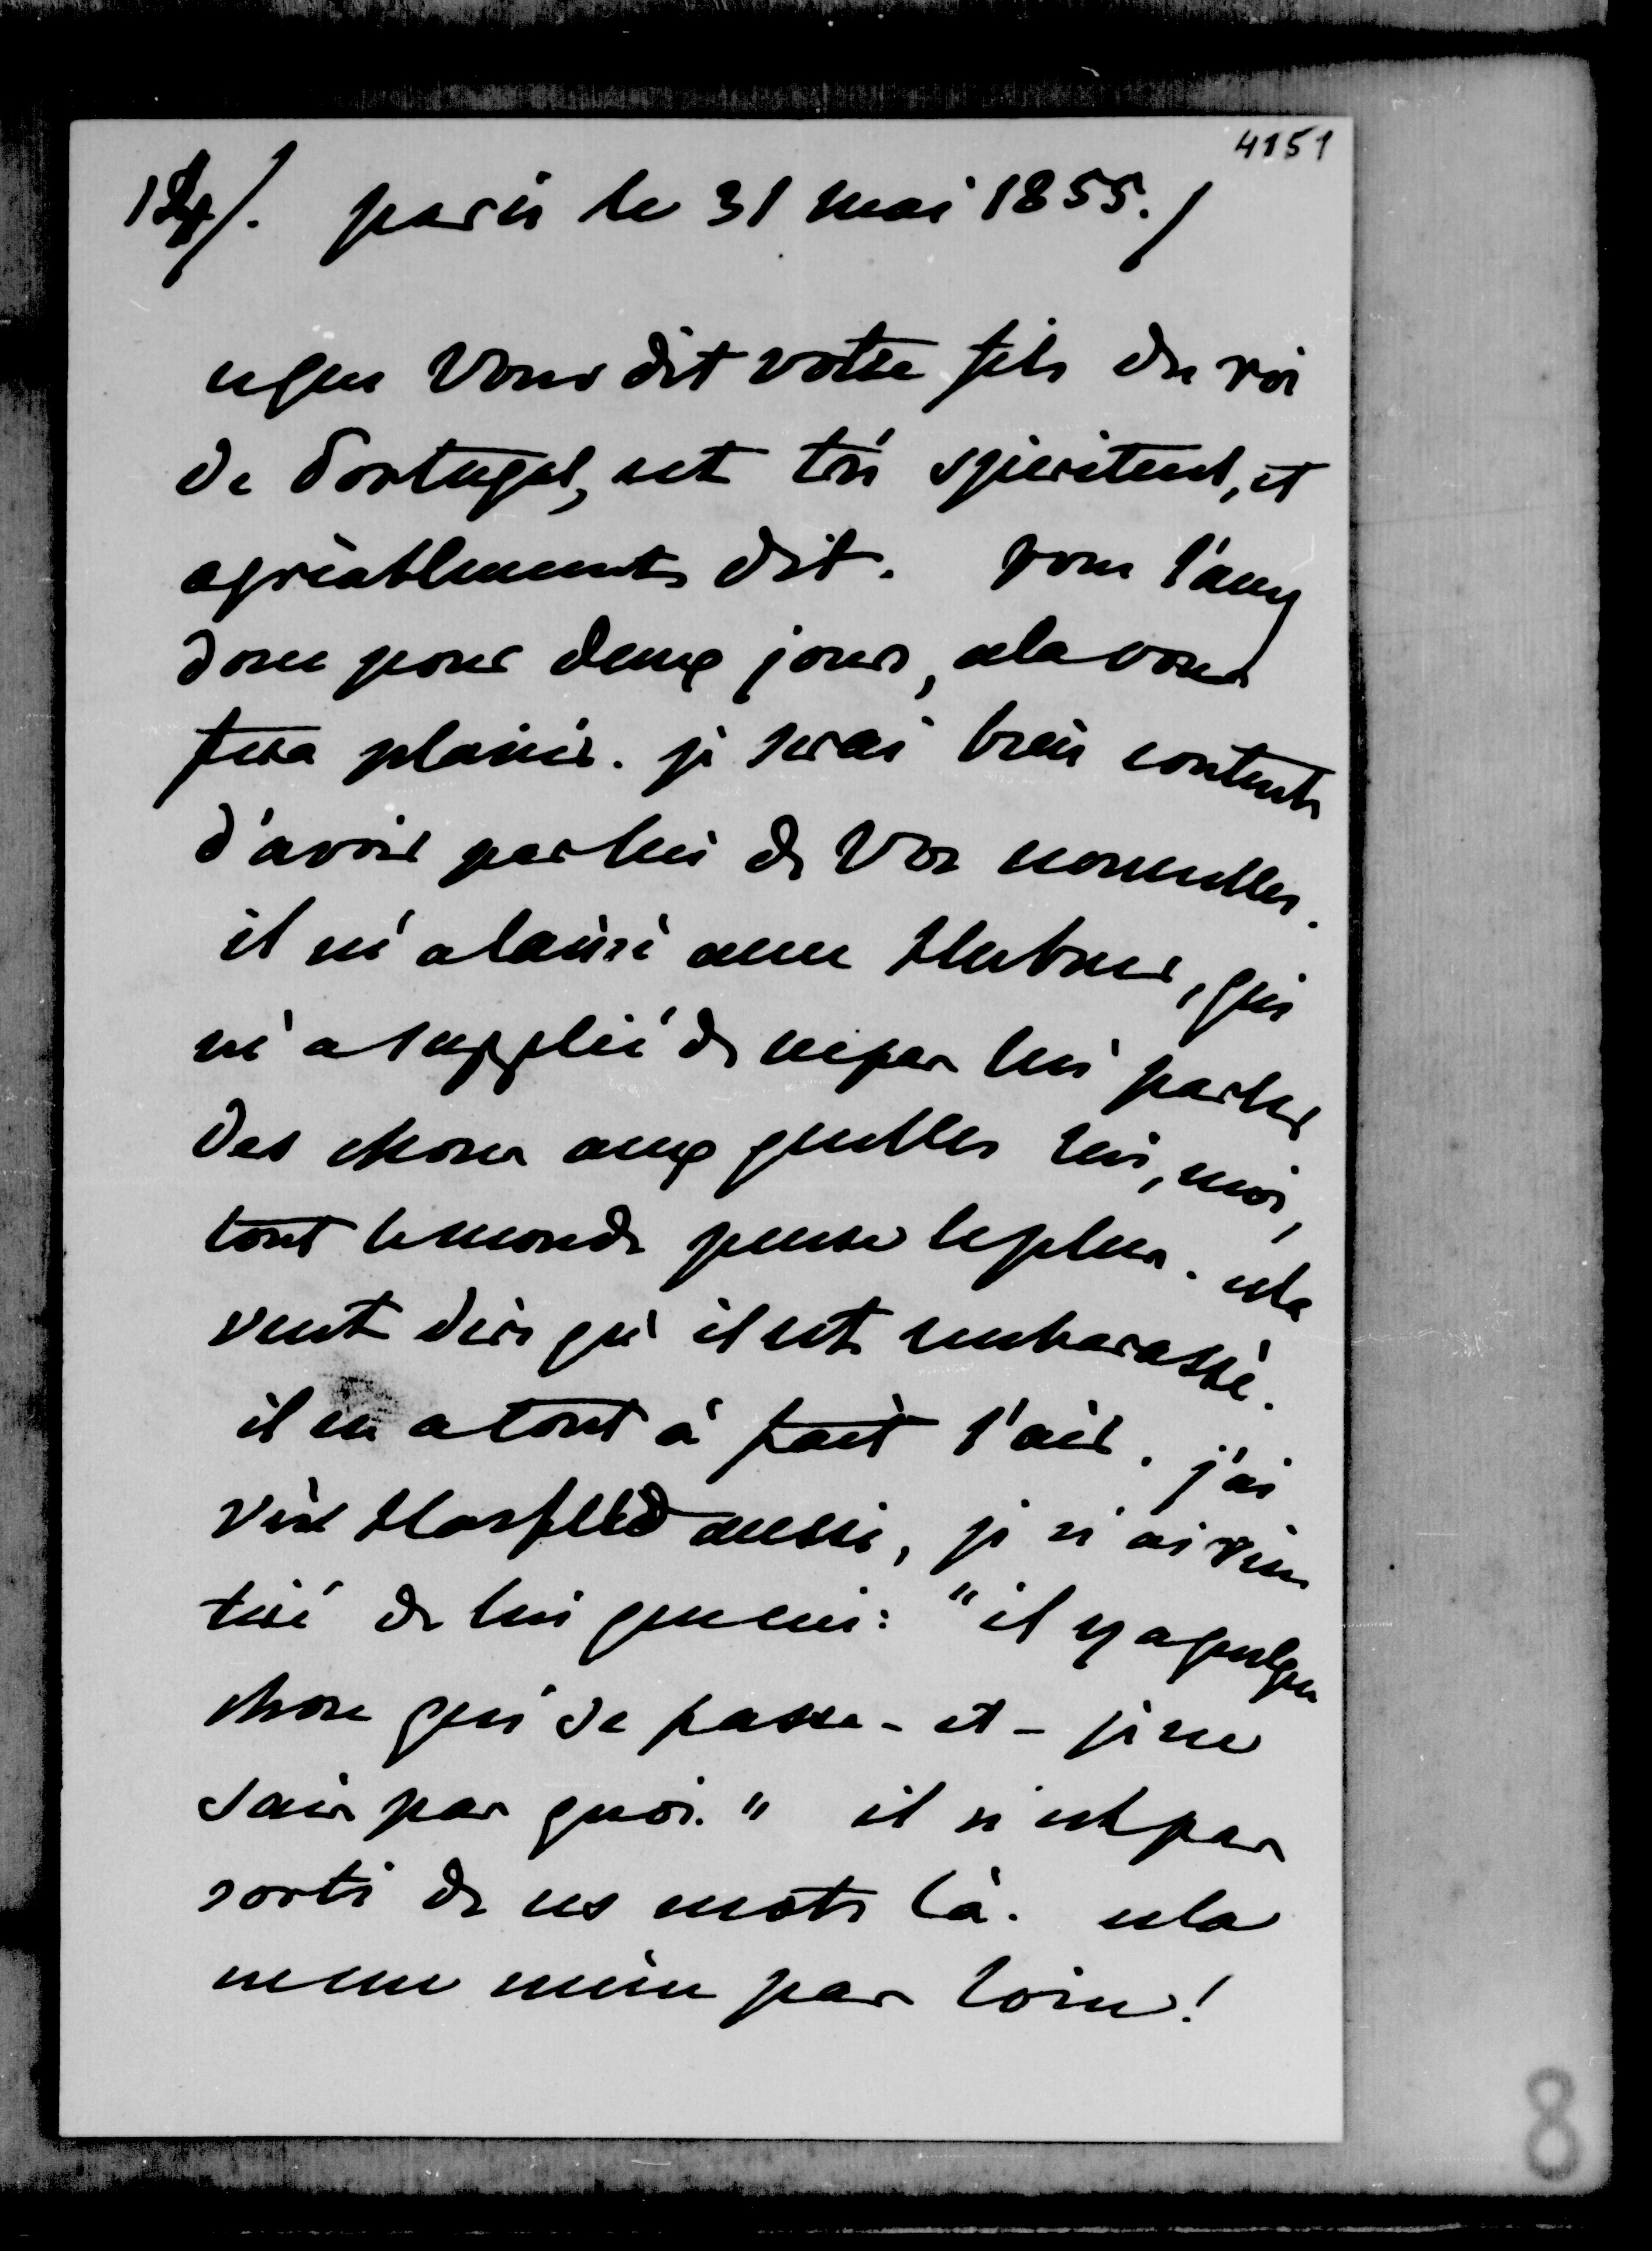 4151
124/. paris le 31 mai 1855./
ce que vous dit votre fils du roi
de Portugal, est très spirituel, et
agréablement dit. vous l'avez
donc pour deux jours, cela vous
fera plaisir. je serai bien contente
d'avoir par lui de vos nouvelles.
il m'a laissé avec Hubner, qui
m'a supplié de ne pas lui parler
des choses auxquelles lui, moi,
tout le monde pense le plus. cela
veut dire qu'il est embarassé.
il en a tout à fait l'air. j'ai
vu Hatzfeld aussi, je n'ai rien
tiré de lui que ceci: "il y a quelque
chose qui se passe - et - je ne
sais pas quoi." il n'est pas
sorti de ces mots là. cela
ne me mène pas loin!
8